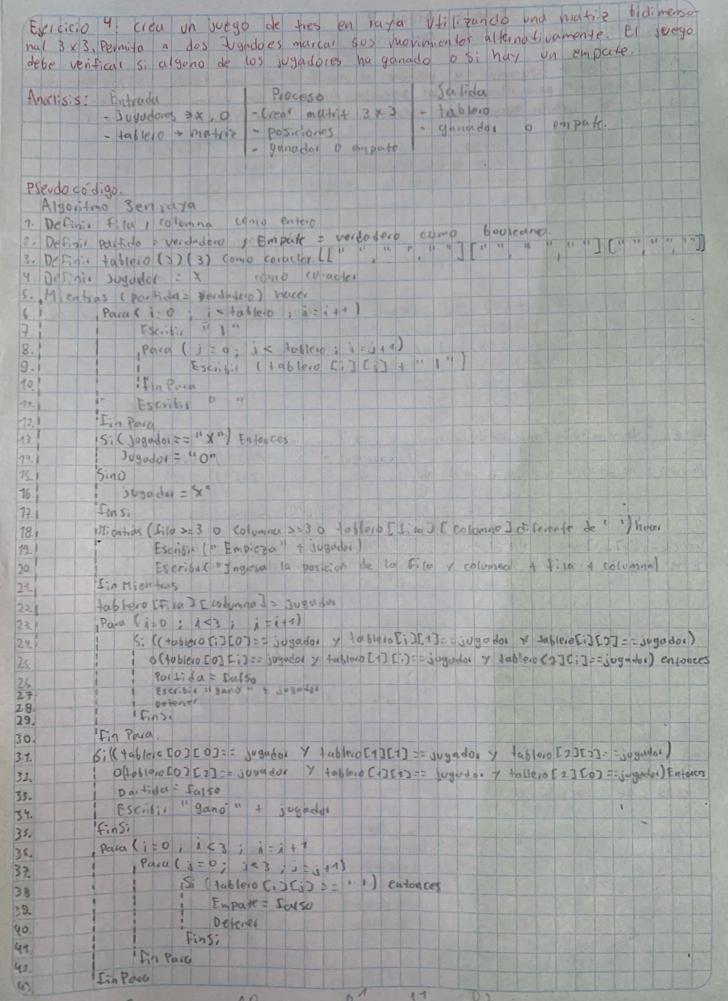 Ejercicio 4: Crea un juego de tres en raya utilizando una matriz bidimensio
nal 3x3. Permita a dos jugadores marcar sus movimientos alternativamente. El juego
debe verificar si alguno de los jugadores ha ganado o si hay un empate.
Analisis: Entrada | Proceso | Salida
- Jugadores → x, 0 | - Crear matriz 3x3 | - tablero
- tablero → matriz | - posiciones | - ganador o empate.
- ganador o empate
Pseudocódigo.
Algoritmo 3enraya
1. Definir fila, columna como entero
2. Definir partida = verdadero y Empate = verdadero como booleano.
3. Definir tablero (3)(3) como caracter [[" ", " ", " "][" ", " ", " "][" ", " ", " "]]
4. Definir jugador = x como caracter
5. Mientras (partida = verdadero) hacer
6. Para (i=0 ; i< tablero ; i=i+1)
7. Escribir "|"
8. Para (j=0; j< tablero ; j=j+1)
9. Escribir (tablero [i][j] + "|")
10. Fin Para
11. Escribir " "
12. Fin Para
13. Si (Jugador == "x") Entonces
14. Jugador = "0"
15. Sino
16. jugador = "x"
17. Finsi
18. Mientras (fila >=3 o columna >=3 o tablero [fila][columna] diferente de ' ') hacer
19. Escribir (" Empieza " + jugador)
20. Escribir ("Ingresa la posicion de la fila y columna + fila + columna)
21. Fin Mientras
22. tablero [fila][columna] = Jugador
23. Para (i=0 ; i<3 ; i=i+1)
24. Si ((tablero[i][0]== jugador y tablero[i][1]==jugador y tablero[i][2]==jugador)
25. o(tablero [0][i]== jugador y tablero[1][i]==jugador y tablero[2][i]==jugador) entonces
26. Partida = falso
27. Escribir "gano" + jugador
28. Detener
29. finsi
30. Fin Para
31. Si((tablero[0][0]== jugador y tablero[1][1]== jugador y tablero[2][2]==jugador)
32. o(tablero[0][2]== jugador y tablero[1][1]== jugador y tablero[2][0]==jugador) Entonces
33. Partida = falso
34. Escribir "ganó" + jugador
35. FinSi
36. Para (i=0 ; i<3 ; i=i+1
37. Para (j=0; j<3 ; j=j+1)
38 Si (tablero[i][j] == ' ') entonces
39. Empate = falso
40. Detener
41. finsi
42. Fin Para
43. Fin Para